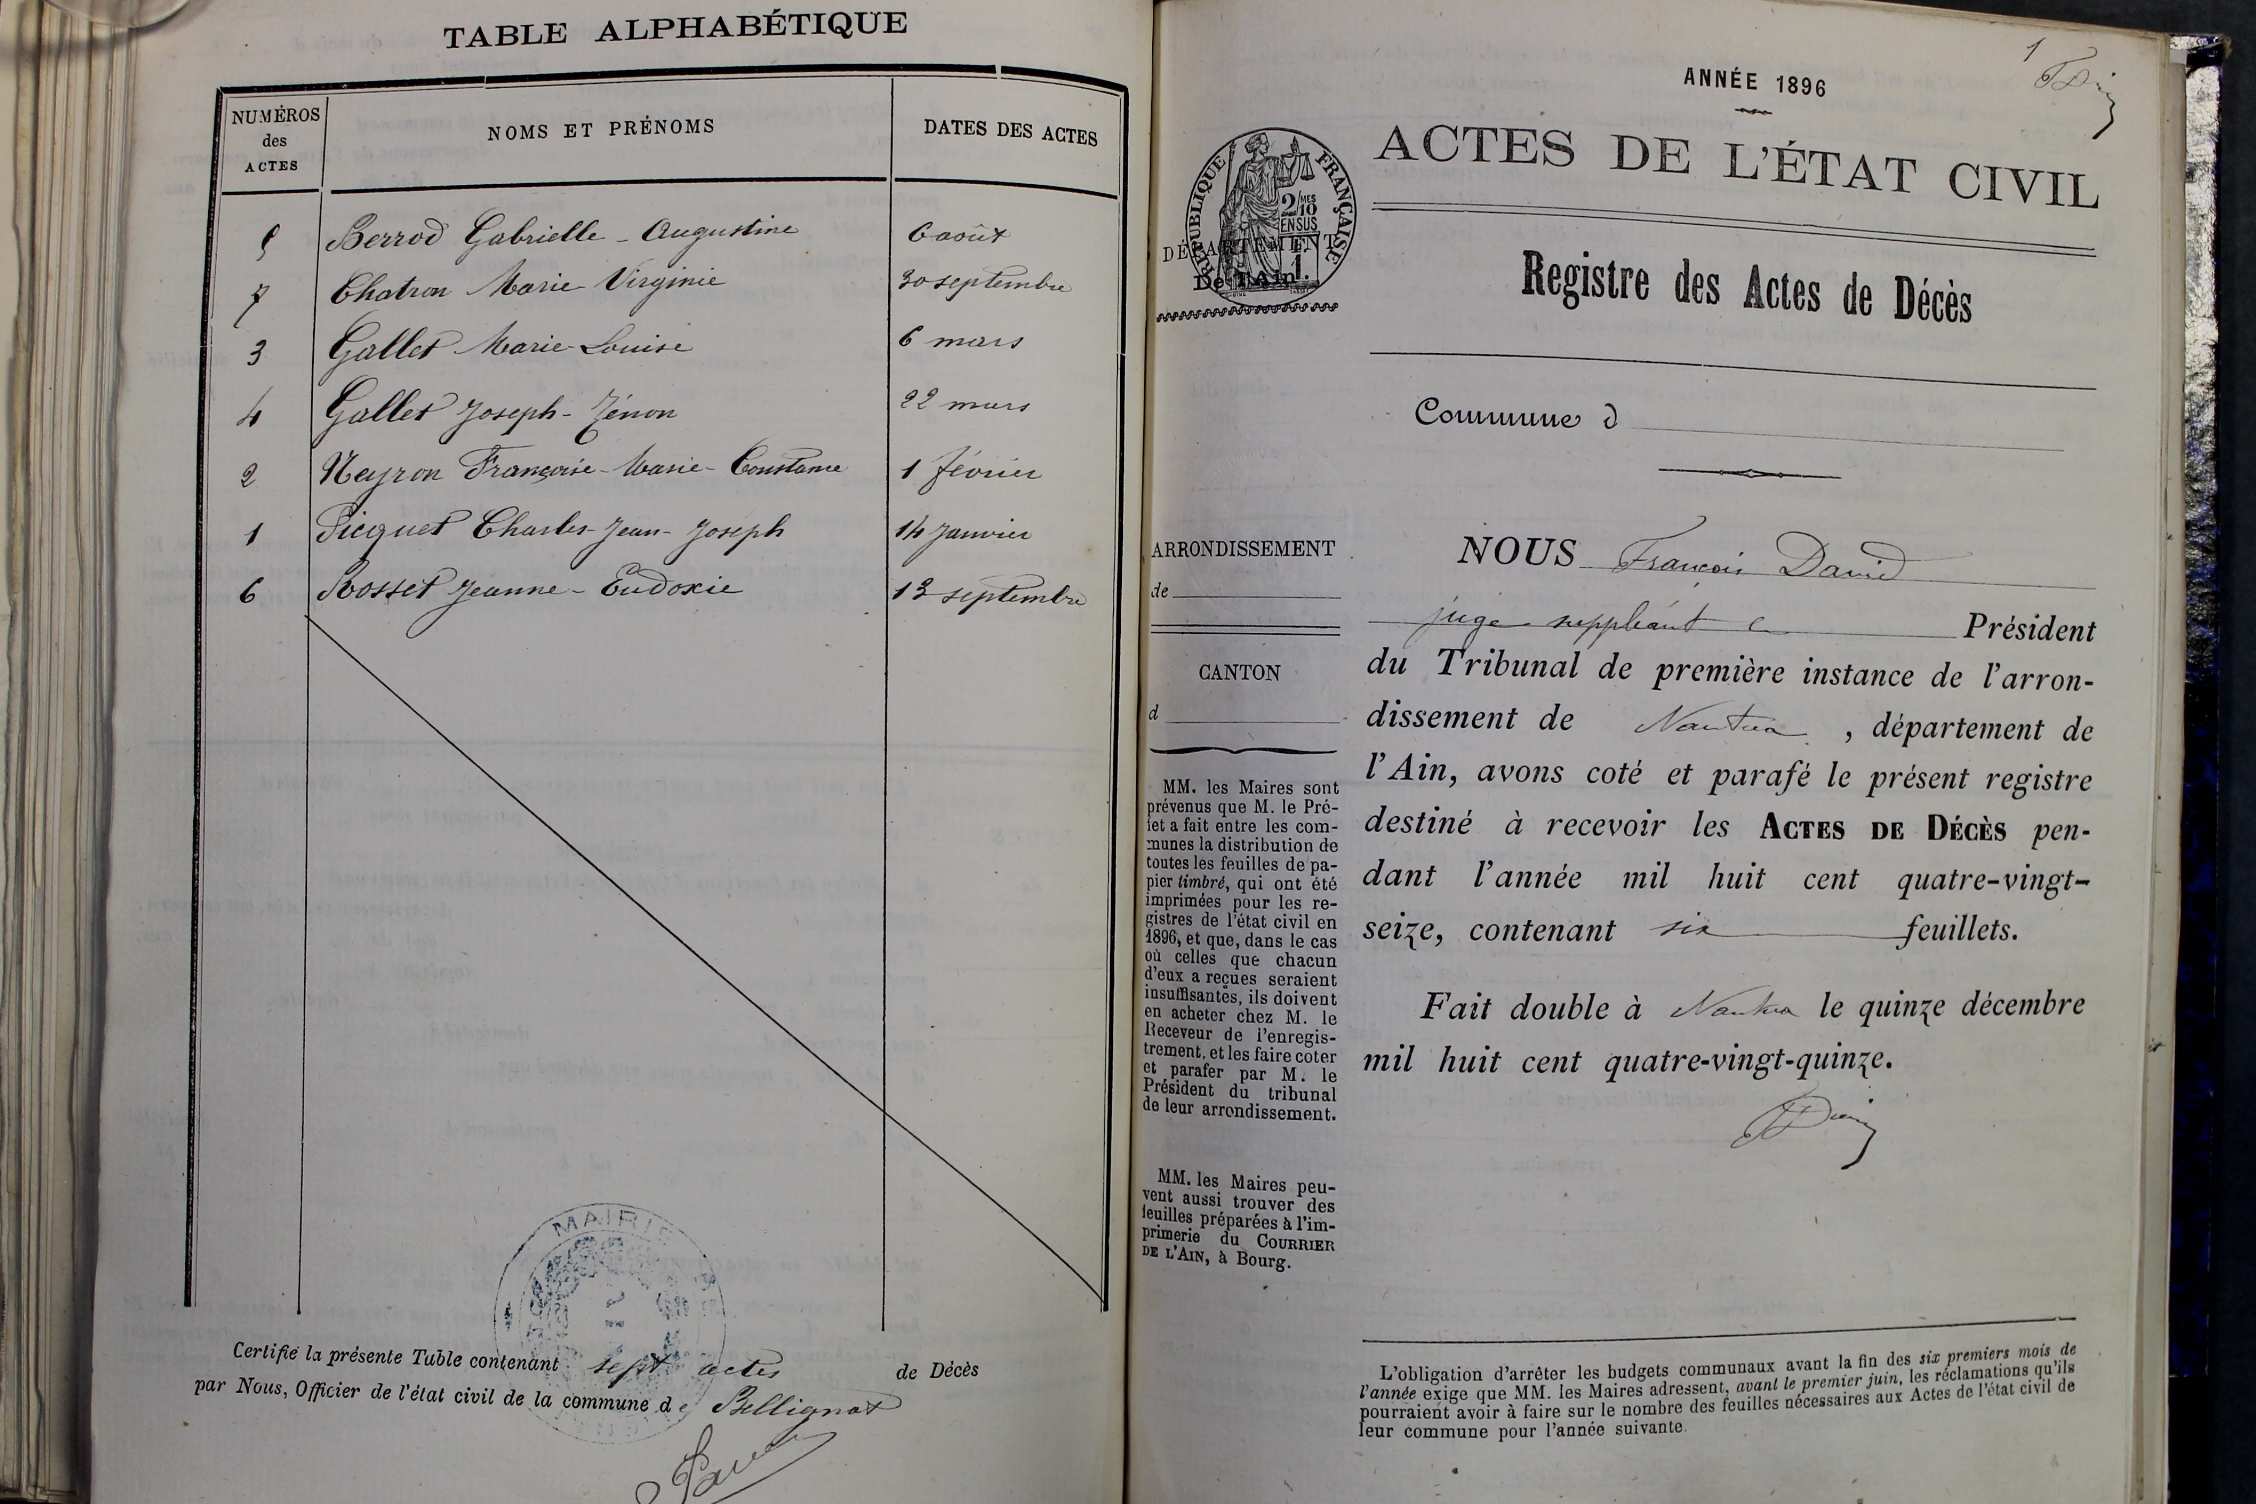 TABLE ALPHABÉTIQUE
NUMÉROS
des
ACTES
NOMS ET PRÉNOMS
DATES DES ACTES
5 Berrod Gabrielle - Augustine 6 août
7 Chatron Marie Virginie 30 septembre
3 Gallet Marie-Louise 6 mars
4 Gallet Joseph-Zénon 22 mars
2 Neyron Françoise-Marie-Constance 1 février
1 Picquet Charles-Jean-Joseph 14 Janvier
6 Rosset Jeanne-Eudoxie 13 septembre
Certifié la présente Table contenant sept actes de Décès
par Nous, Officier de l'état civil de la commune de Bellignat
MAIRIE
1
ANNÉE 1896
ACTES DE L'ÉTAT CIVIL
RÉPUBLIQUE FRANÇAISE
2/10MES
EN SUS
DÉPARTEMENT
De l'Ain
Registre des Actes de Décès
Commune d
ARRONDISSEMENT
de
CANTON
d
MM. les Maires sont
prévenus que M. le Pré-
fet a fait entre les com-
munes la distribution de
toutes les feuilles de pa-
pier timbré, qui ont été
imprimées pour les re-
gistres de l'état civil en
1896, et que, dans le cas
où celles que chacun
d'eux a reçues seraient
insuffisantes, ils doivent
en acheter chez M. le
Receveur de l'enregis-
trement, et les faire coter
et parafer par M. le
Président du tribunal
de leur arrondissement.
MM. les Maires peu-
vent aussi trouver des
feuilles préparées à l'im-
primerie du COURRIER
DE L'AIN, à Bourg.
NOUS François David
juge suppléant Président
du Tribunal de première instance de l'arron-
dissement de Nantua, département de
l'Ain, avons coté et parafé le présent registre
destiné à recevoir les ACTES DE DÉCÈS pen-
dant l'année mil huit cent quatre-vingt-
seize, contenant six feuillets.
Fait double à Nantua le quinze décembre
mil huit cent quatre-vingt-quinze.
L'obligation d'arrêter les budgets communaux avant la fin des six premiers mois de
l'année exige que MM. les Maires adressent, avant le premier juin, les réclamations qu'ils
pourraient avoir à faire sur le nombre des feuilles nécessaires aux Actes de l'état civil de
leur commune pour l'année suivante.